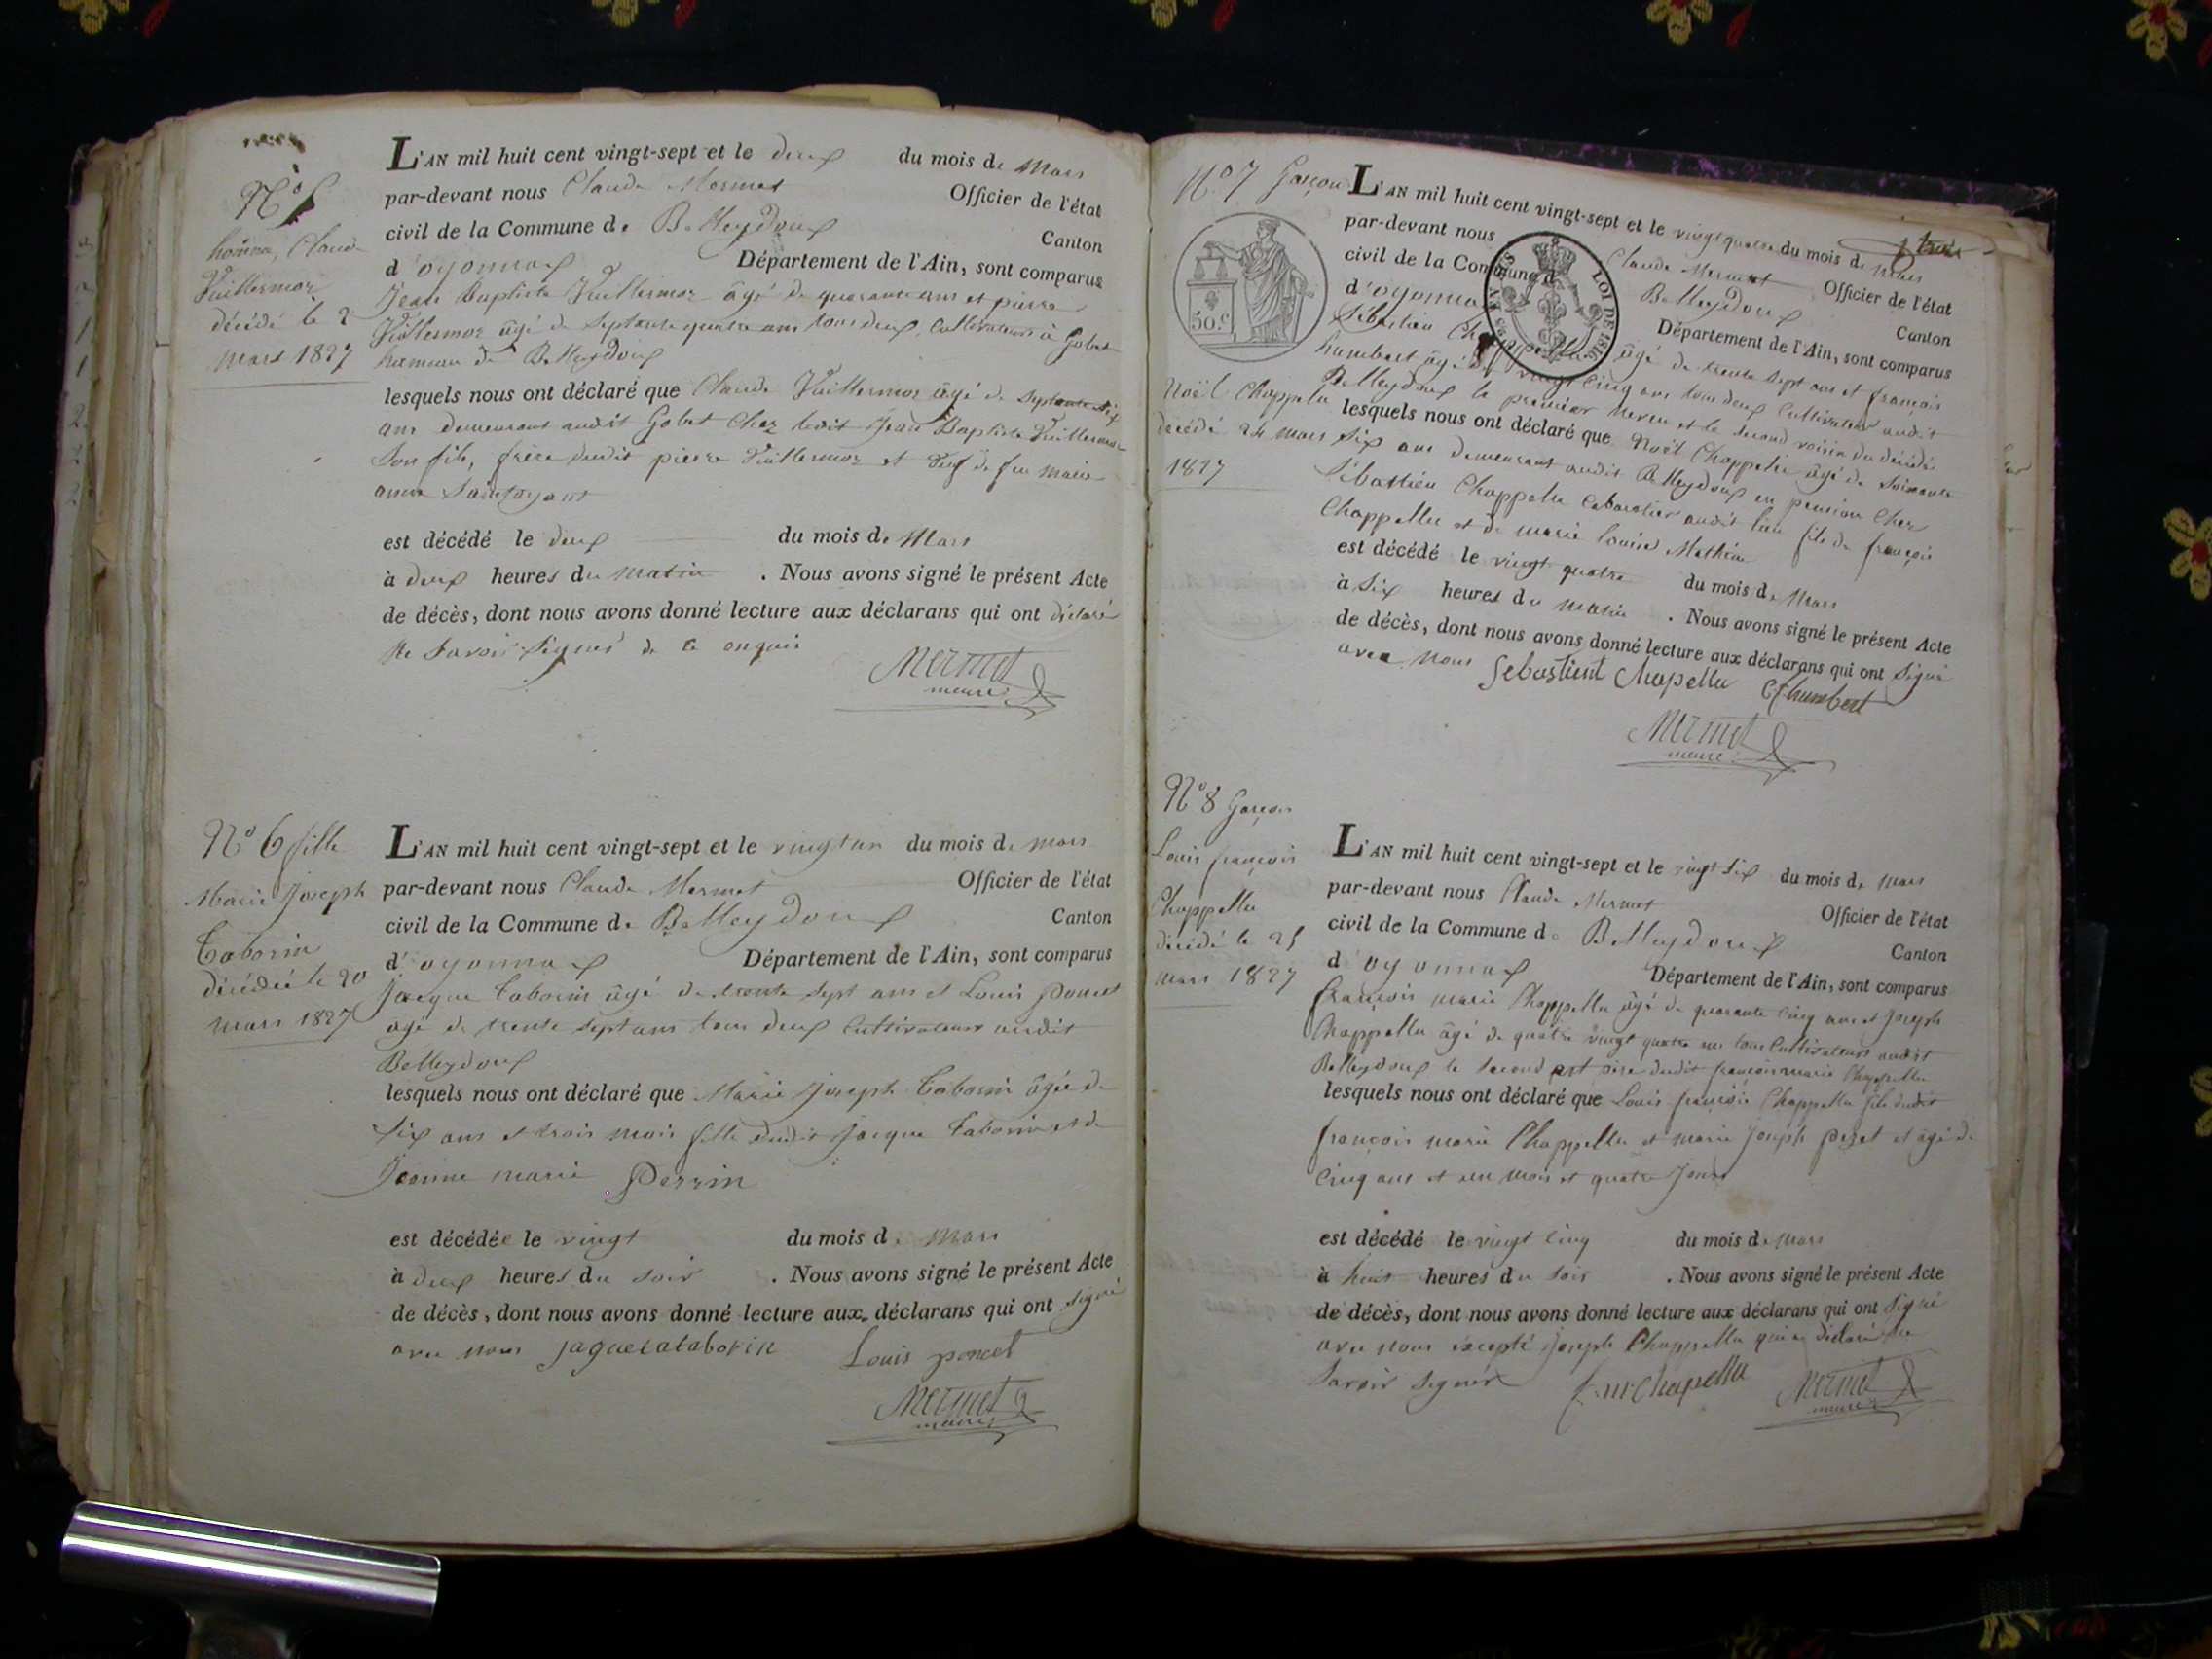 N° 5
homme, Claude
Vuillermoz
décédé le 2
mars 1827
L'AN mil huit cent vingt-sept et le deux du mois de Mars
par-devant nous Claude Mermet Officier de l'état
civil de la Commune de Belleydoux Canton
d'oyonnax Département de l'Ain, sont comparus
Jean Baptiste Vuillermoz âgé de quarante ans et pierre
Vuillermoz âgé de septante quatre ans tous deux Cultivateurs à Gobet
hameau de Belleydoux
lesquels nous ont déclaré que Claude Vuillermoz âgé de septante six
ans demeurant audit Gobet Chez ledit Jean Baptiste Vuillermoz
Son fils, frère dudit pierre Vuillermoz et veuf de feu marie
anne Saintoyant
est décédé le deux du mois de Mars
à deux heures du matin . Nous avons signé le présent Acte
de décès, dont nous avons donné lecture aux déclarans qui ont déclaré
Ne Savoir Signer de ce enquis
Mermet
maire
N° 6 fille
Marie Joseph
Taborin
décédée le 20
mars 1827
L'AN mil huit cent vingt-sept et le vingt un du mois de mars
par-devant nous Claude Mermet Officier de l'état
civil de la Commune de Belleydoux Canton
d'oyonnax Département de l'Ain, sont comparus
Jacque Taborin âgé de trente sept ans et Louis Poncet
âgé de trente sept ans tous deux Cultivateurs audit
Belleydoux
lesquels nous ont déclaré que Marie Joseph Taborin âgée de
six ans et trois mois fille dudit Jacque Taborin et de
Jeanne marie Perrin
est décédée le vingt du mois de Mars
à deux heures du soir . Nous avons signé le présent Acte
de décès, dont nous avons donné lecture aux déclarans qui ont signé
avec nous jaquelataborin Louis poncet
Mermet
maire
N° 7 Garçon
50.c
LOI DE 1816
Noël Chappelu
décédé 24 mars
1827
L'AN mil huit cent vingt-sept et le vingt quatre du mois de Mars
par-devant nous Claude Mermet Officier de l'état
civil de la Commune de Belleydoux Canton
d'oyonnax Département de l'Ain, sont comparus
Sébastien Chappellu âgé de trente sept ans et françois
humbert âgé de vingt Cinq ans tous deux Cultivateur audit
Belleydoux le premier Neveu et le second voisin du décédé
lesquels nous ont déclaré que Noël Chappelu âgé de Soixante
Six ans demeurant audit Belleydoux en pension Chez
Sébastien Chappelu Cabaretier audit lieu fils de françois
Chappellu et de marie louise Mathieu
est décédé le vingt quatre du mois de Mars
à Six heures du matin . Nous avons signé le présent Acte
de décès, dont nous avons donné lecture aux déclarans qui ont Signé
avec nous Sebastient Chapellu humbert
Mermet
maire
N° 8 Garçon
Louis françois
Chappellu
décédé le 25
mars 1827
L'AN mil huit cent vingt-sept et le vingt Six du mois de mars
par-devant nous Claude Mermet Officier de l'état
civil de la Commune de Belleydoux Canton
d'oyonnax Département de l'Ain, sont comparus
françois marie Chappellu âgé de quarante Cinq ans et Joseph
Chappellu âgé de quatre vingt quatre ans tous Cultivateurs audit
Belleydoux le second est père dudit françois marie Chappellu
lesquels nous ont déclaré que Louis françois Chappellu fils dudit
françois marie Chappellu et marie Joseph pezet et âgé de
Cinq ans et un mois et quatre Jours
est décédé le vingt Cinq du mois de Mars
à huit heures du Soir . Nous avons signé le présent Acte
de décès, dont nous avons donné lecture aux déclarans qui ont Signé
avec nous excepté Joseph Chappellu qui a déclaré ne
Savoir Signer f. m. Chapellu Mermet
maire